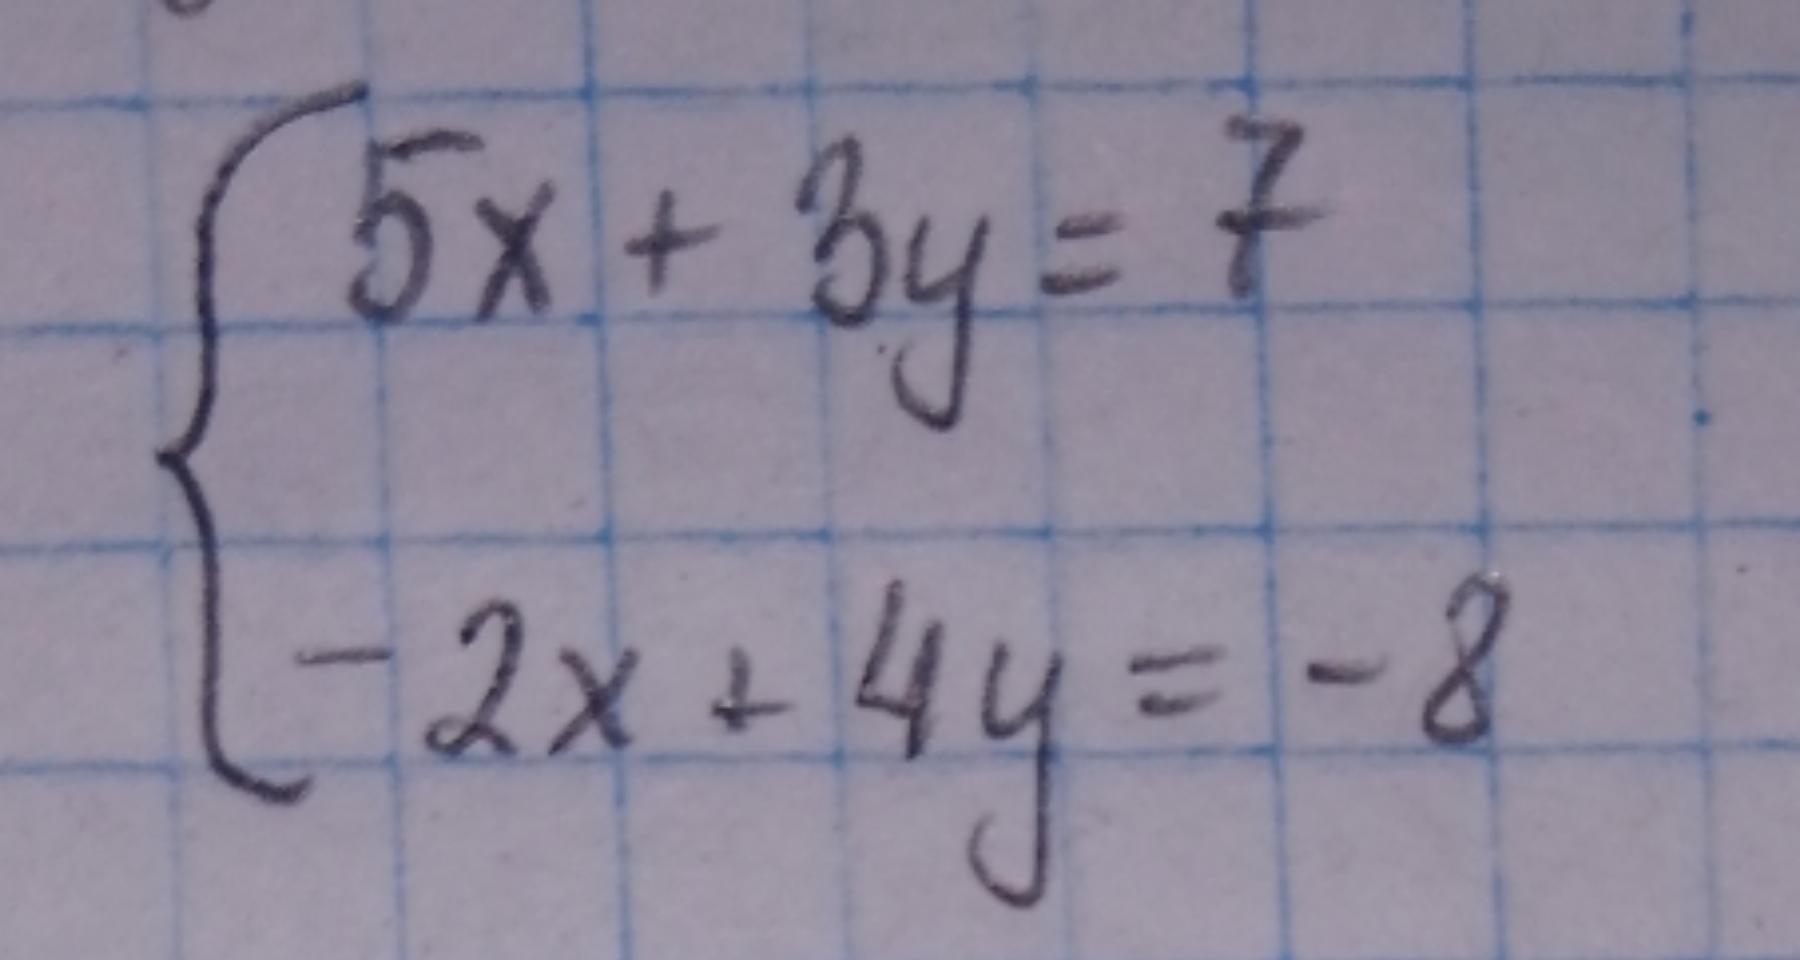 5x + 3y = 7
-2x + 4y = -8